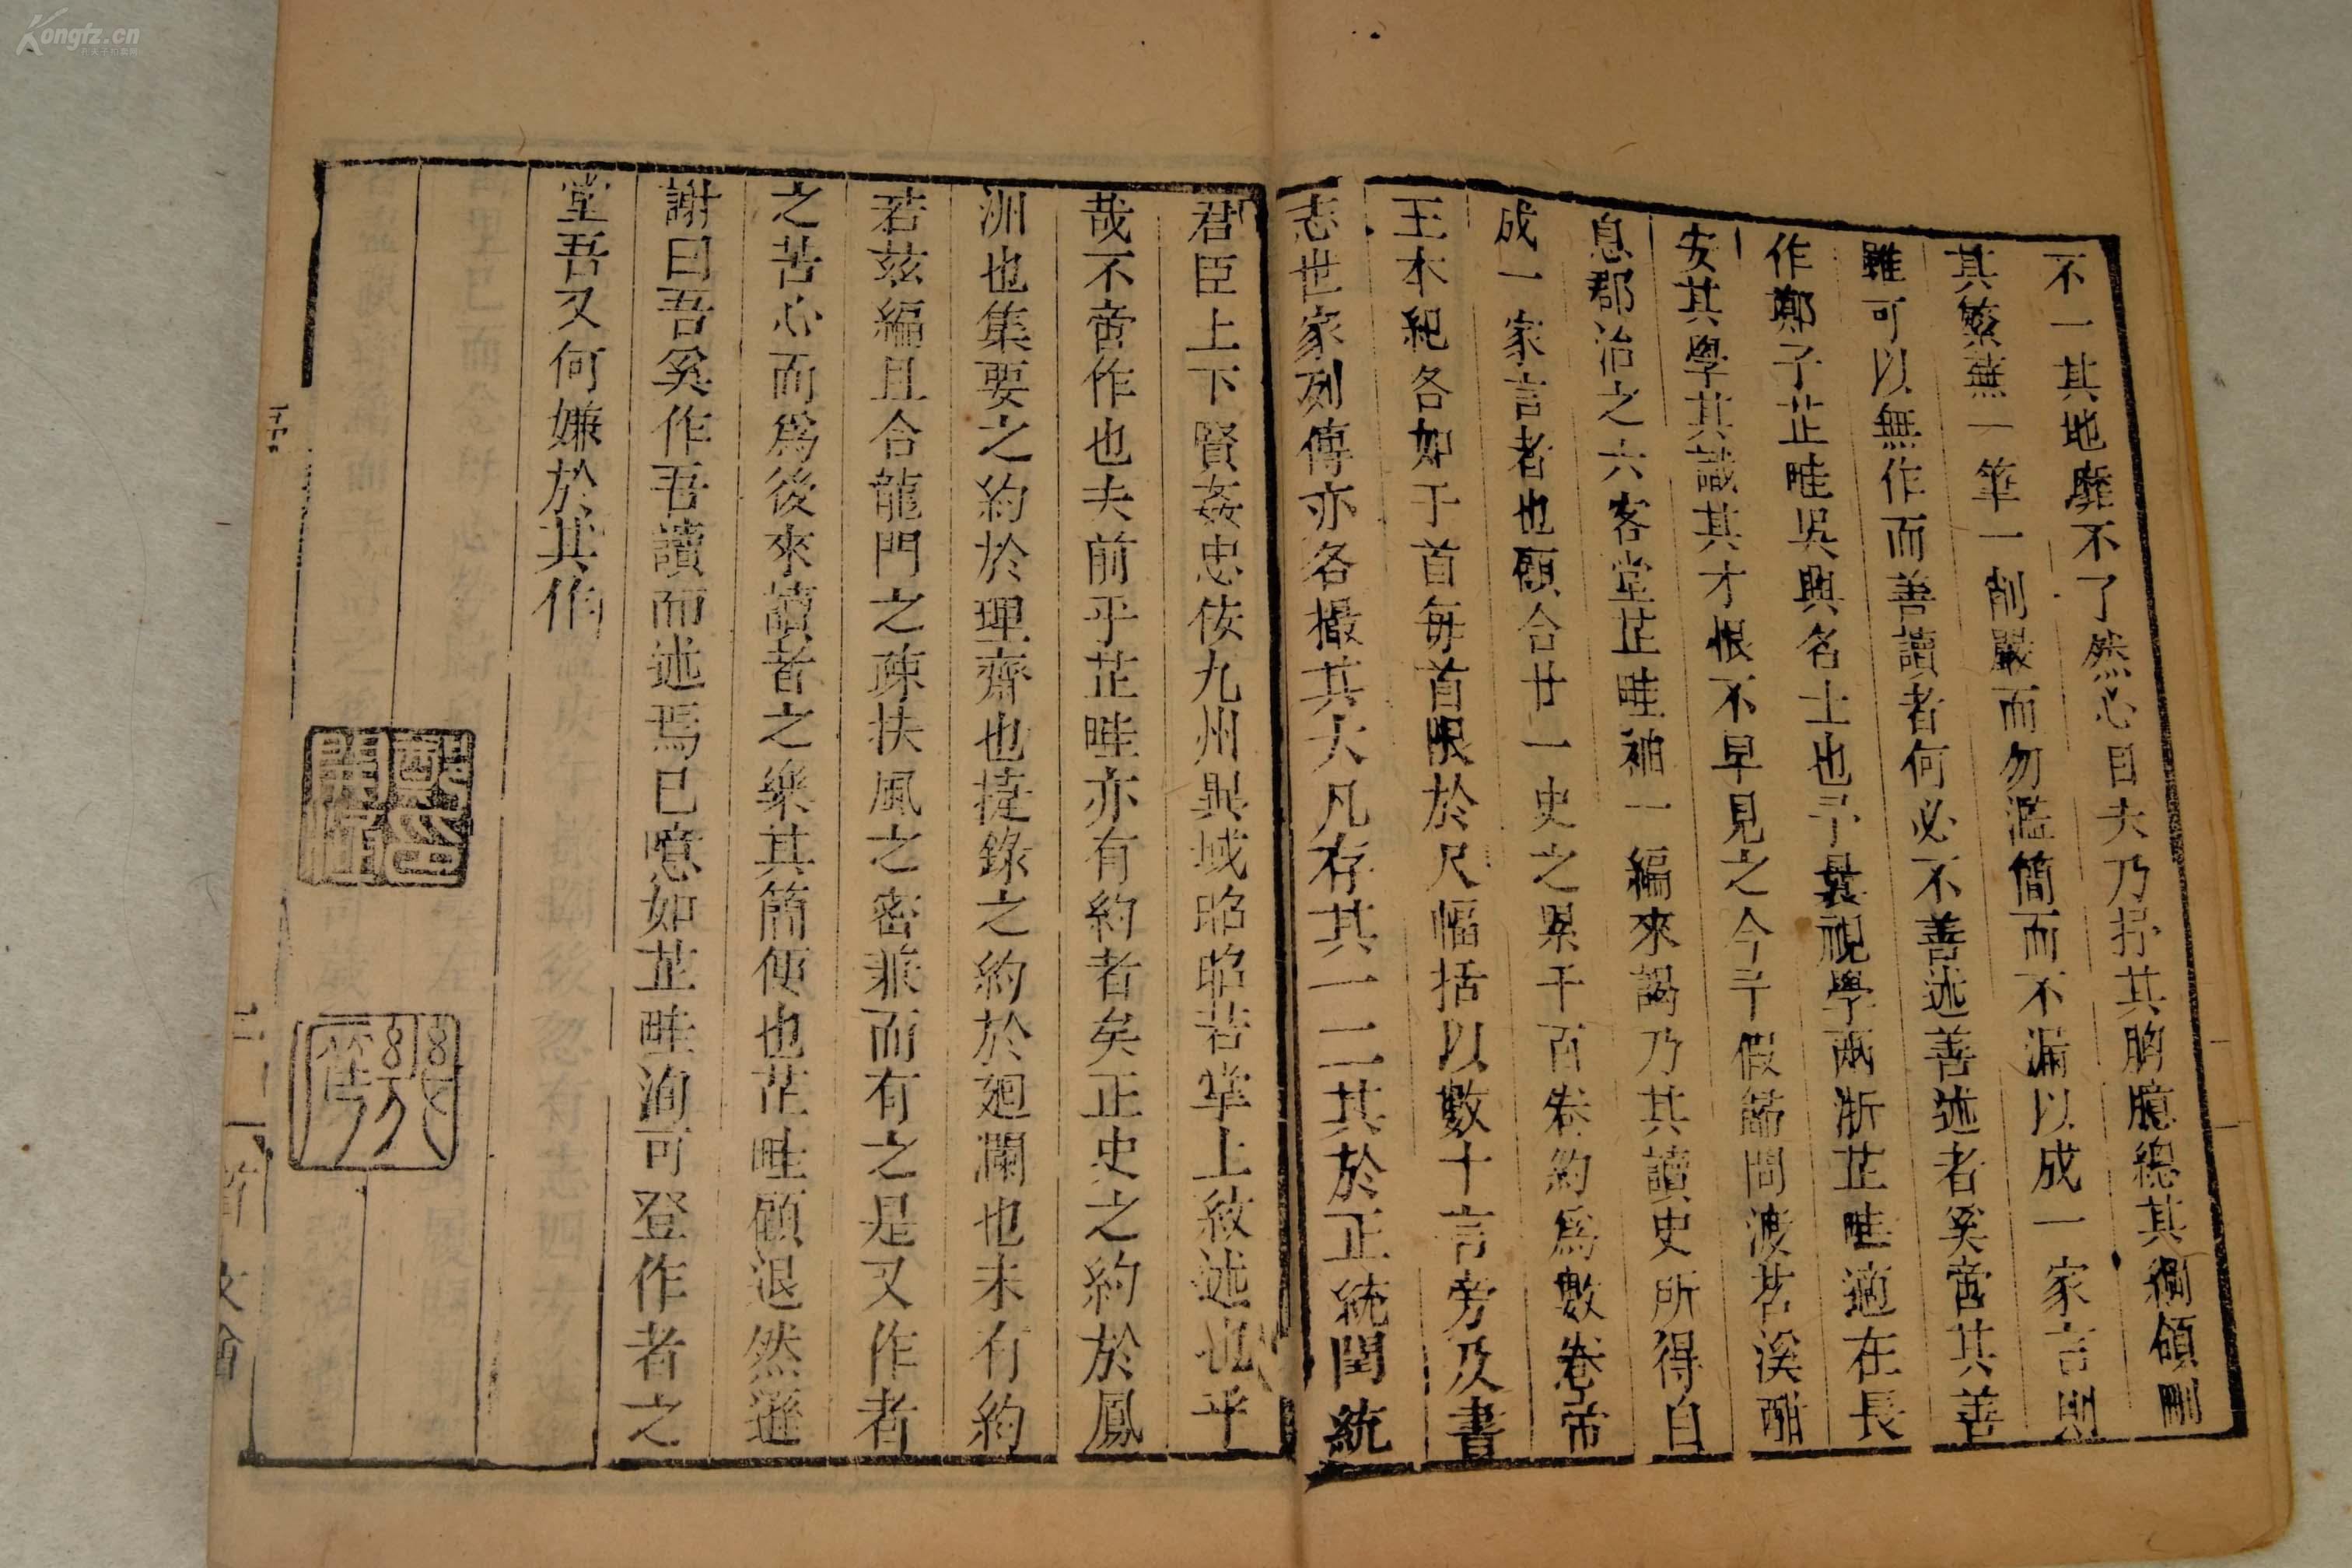 不一其地靡不了然心目夫乃抒其胸臆總其綱領刪
其繁蕪一筆一削嚴而勿濫簡而不漏以成一家言則
雖可以無作而善讀者何必不善述善述者奚啻其善
作鄭子芷畦吳興名士也予曩視學兩浙芷畦適在長
安其學其識其才恨不早見之今予假節問渡苕溪酣
息郡治之六客堂芷畦袖一編來謁乃其讀史所得自
成一家言者也願合廿一史之累千百卷約爲數卷帝
王本紀各如于首每首限於尺幅括以數十言旁及書
志世家列傳亦各撮其大凡存其一二其於正統閏統
君臣上下賢姦忠佞九州異域昭昭若掌上紋述也乎
哉不啻作也夫前乎芷畦亦有約者矣正史之約於鳳
洲也集要之約於理齋也捷錄之約於廻瀾也未有約
若茲編且合龍門之疎扶風之密兼而有之是又作者
之苦心而爲後來讀者之樂其簡便也芷畦顧退然遜
謝曰吾奚作吾讀而述焉已噫如芷畦洵可登作者之
堂吾又何嫌於其作
Kongfz.cn